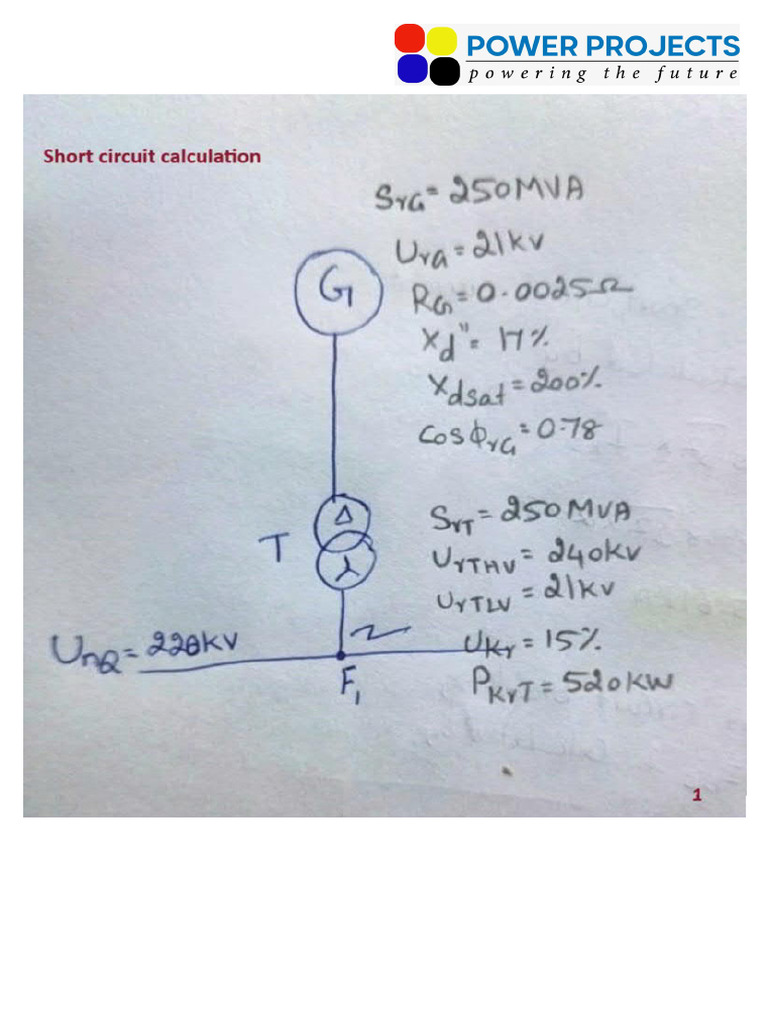 POWER PROJECTS
powering the future
Short circuit calculation
SrG = 250MVA
UrG = 21kV
RG = 0.0025Ω
Xd" = 17%
Xdsat = 200%
CosϕrG = 0.78
G
SrT = 250MVA
UrTHV = 240kV
UrTLV = 21kV
Ukr = 15%
PKrT = 520kW
Δ
T
UnQ = 220kV
F1
1